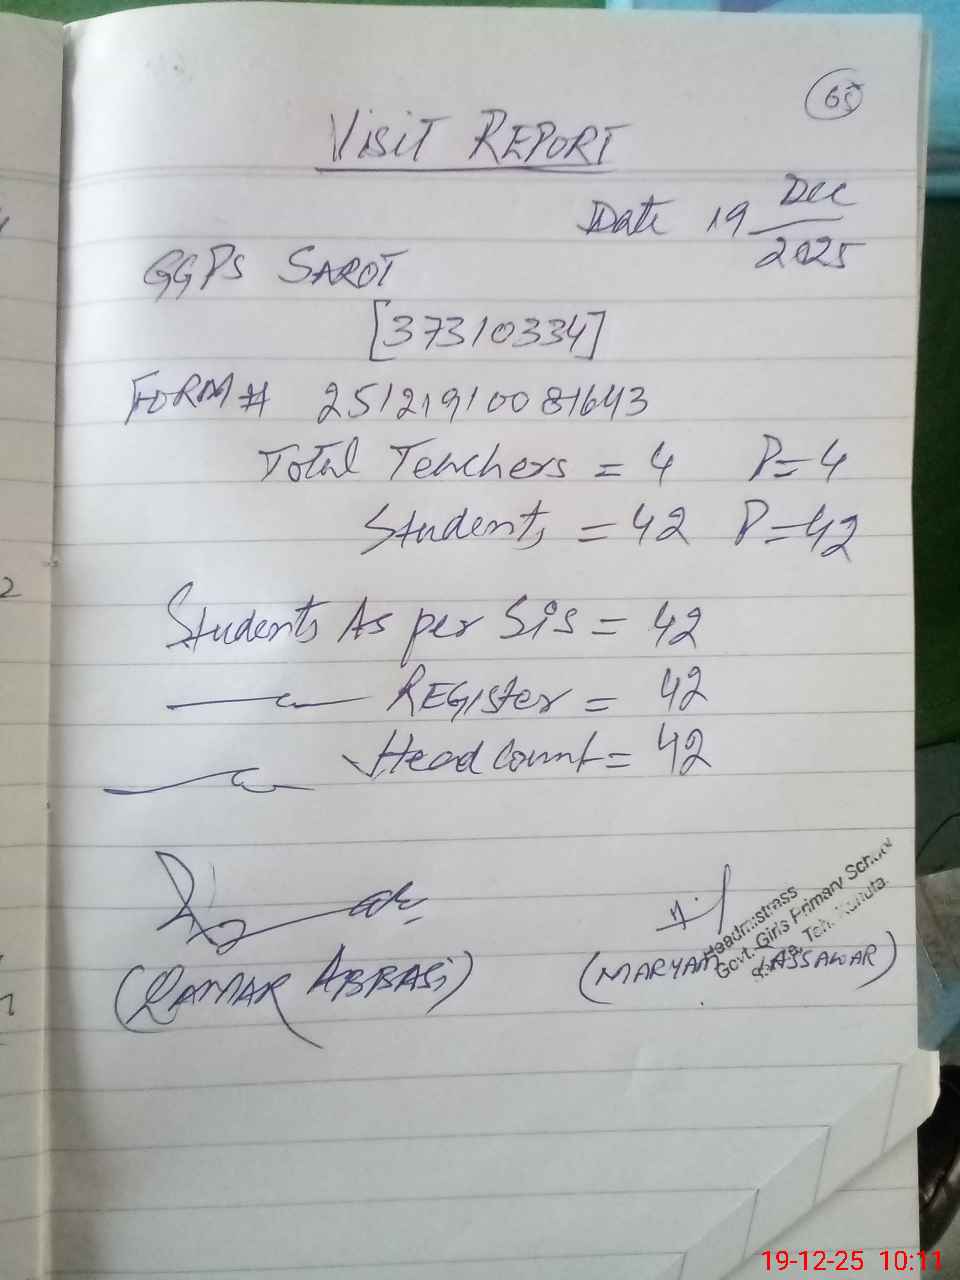 65
VISIT REPORT
Date 19 Dec
2025
GGPS SAROT
[37310334]
FORM# 25121910081643
Total Teachers = 4 P=4
Students = 42 P=42
Students As per SiS = 42
REGister = 42
Head count = 42
(QAMAR ABBASi)
Headmistrass
Govt. Girls Primary School
Teh. Kahuta
(MARYAM
19-12-25 10:11